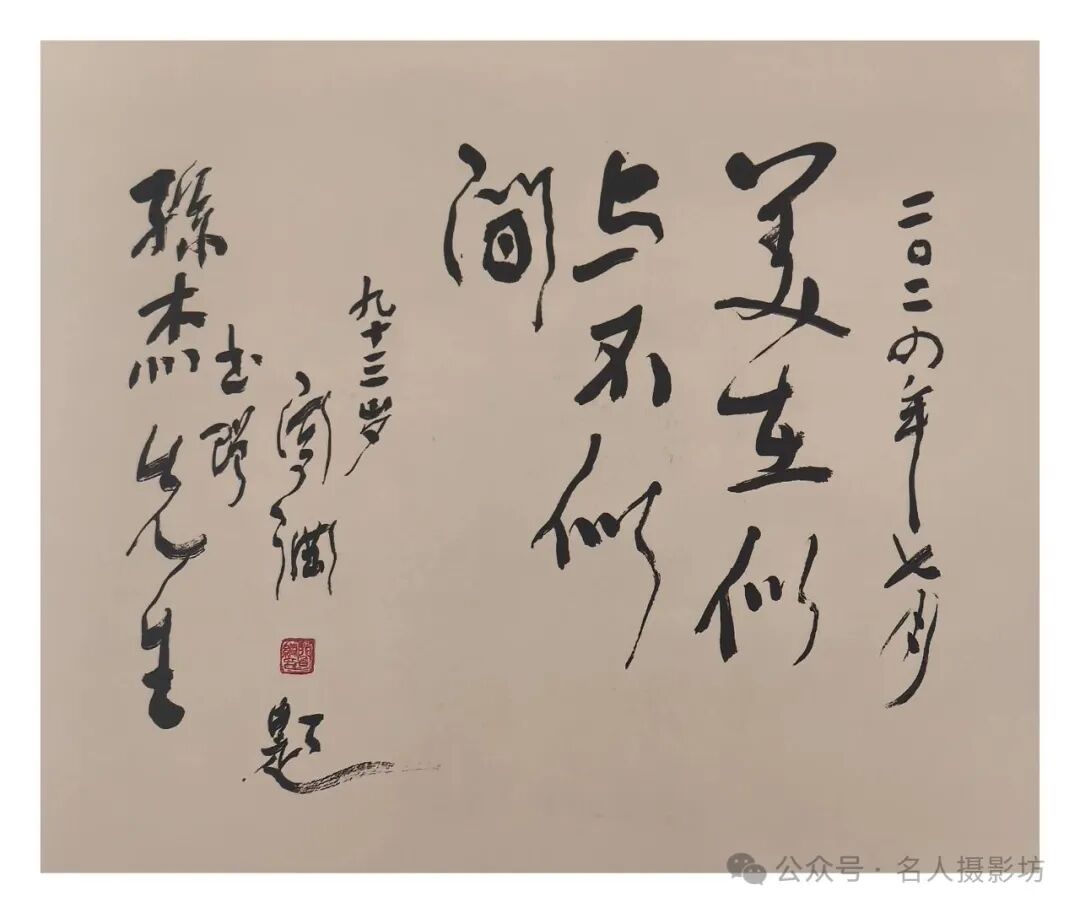 二〇二四年七月
美在似
与不似
間
九十三岁
题
孫杰先生
公众号·名人摄影坊